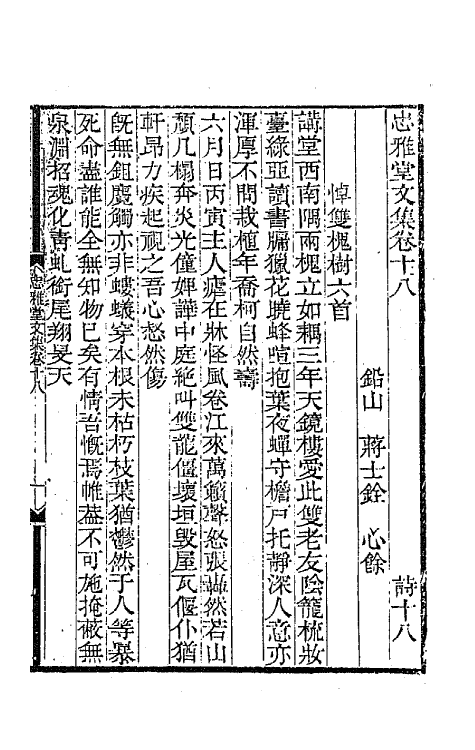 忠雅堂文集卷十八　詩十八
鉛山　蔣士銓　心餘
悼雙槐樹六首
講堂西南隅兩槐立如耦三年天鏡樓愛此雙老友陰籠梳妝
臺綠亞讀書牖獵花曉蜂喧抱葉夜蟬守檐戶托靜深人意亦
渾厚不問栽植年喬柯自然壽
六月日丙寅主人瘧在牀怪風卷江來萬籟聲怒張轟然若山
頹几榻奔炎光僮婢譁中庭絕叫雙龍僵壞垣毀屋瓦偃仆猶
軒昂力疾起視之吾心惄然傷
旣無鉏麑觸亦非螻蟻穿本根未枯朽枝葉猶鬱然于人等暴
死命盡誰能全無知物已矣有情吾慨焉帷蓋不可施掩蔽無
泉淵招魂化青虬銜尾翔旻天
忠雅堂文集卷十八
一